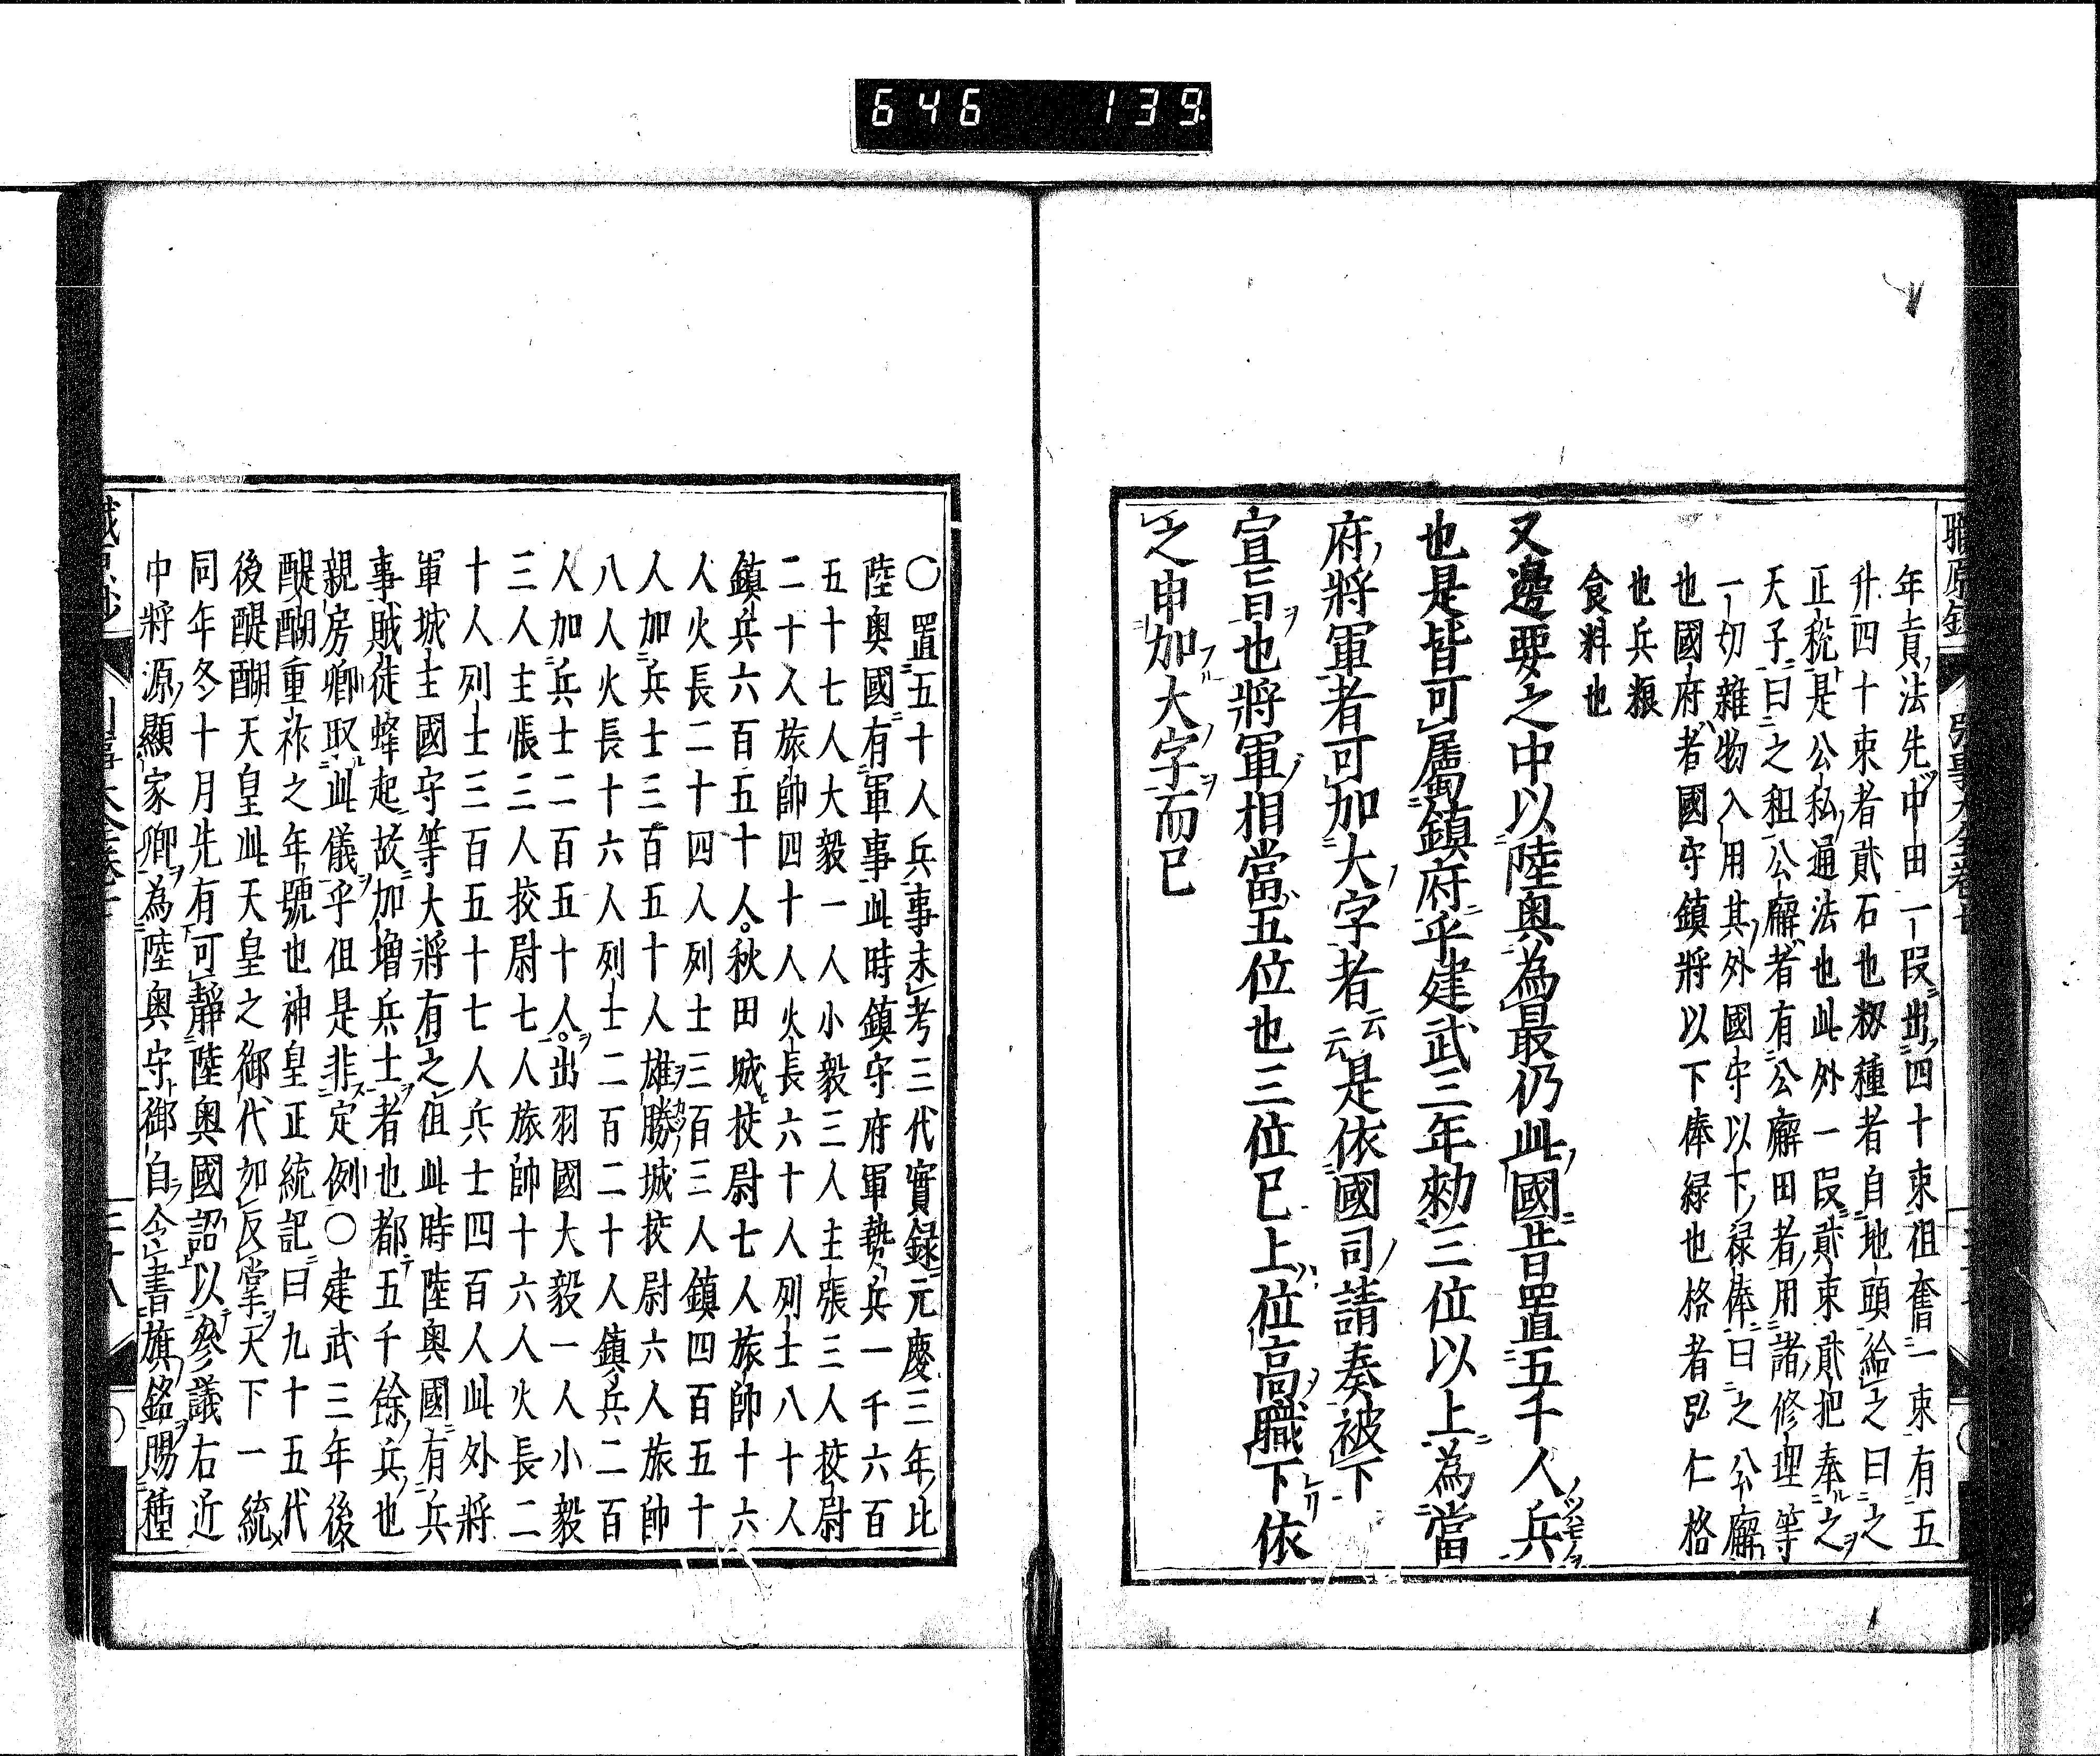 646 139
年貢法先中田一段出四十束徂奮一束有五
升四十束者貳石也籾種者自地頭給之曰之
正税是公私通法也此外一段貳束貳把奉之
天子曰之租公廨者有公廨田者用諸修理等
一切雜物入用其外國守以下禄俸曰之公廨
也國府者國守鎮將以下俸緑也格者弘仁格
也兵粮
食料也
又邊要之中以陸奥為最仍此國昔置五千人兵
也是皆可属鎮府乎建武三年勅三位以上為當
府將軍者可加大字者云云是依國司請奏被下
宣旨也將軍相當五位也三位已上位高職下依
之申加大字而已
〇置五十人兵事未考三代實録元慶三年比
陸奥國有軍事此時鎮守府軍勢兵一千六百
五十七人大毅一人小毅三人主張三人挍尉
二十人旅帥四十人火長六十人列士八十人
鎮兵六百五十人秋田城挍尉七人旅帥十六
人火長二十四人列士三百三人鎮四百五十
人加兵士三百五十人雄勝城挍尉六人旅帥
八人火長十六人列士二百二十人鎮兵二百
人加兵士二百五十人出羽國大毅一人小毅
三人主張三人挍尉七人旅帥十六人火長二
十人列士三百五十七人兵士四百人此外將
軍城主國守等大將有之徂此時陸奥國有兵
事賊徒蜂起故加增兵士者也都五千餘兵也
親房卿取此儀乎但是非定例〇建武三年後
醍醐重祚之年號也神皇正統記曰九十五代
後醍醐天皇此天皇之御代如反掌天下一統
同年冬十月先有可靜陸奥國詔以參議右近
中將源顯家卿為陸奥守御自令書旗銘賜種